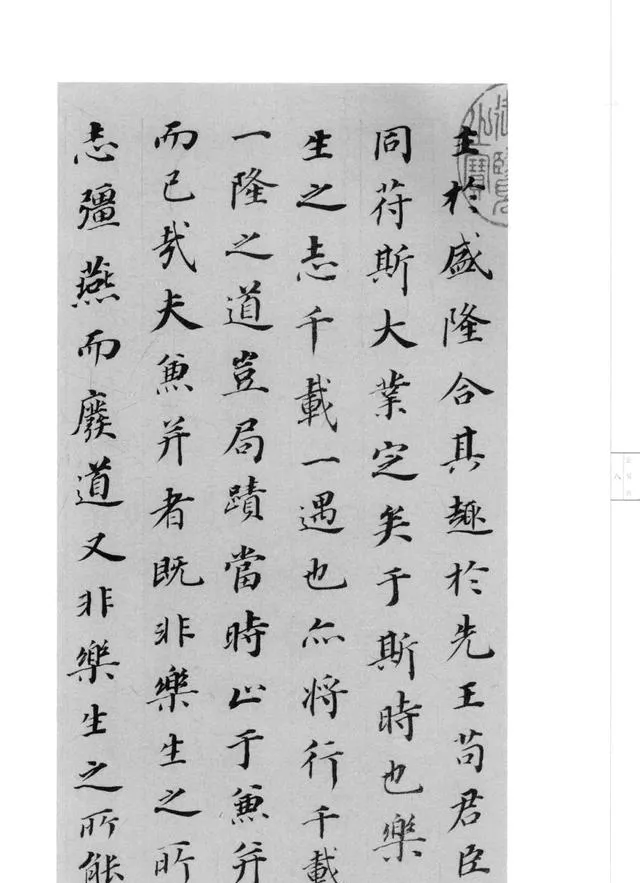 主於盛隆合其趣於先王苟君臣
同苻斯大業定矣于斯時也樂
生之志千載一遇也亦將行千載
一隆之道豈局蹟當時止于兼并
而已哉夫兼并者既非樂生之所
志彊燕而廢道又非樂生之所能
八